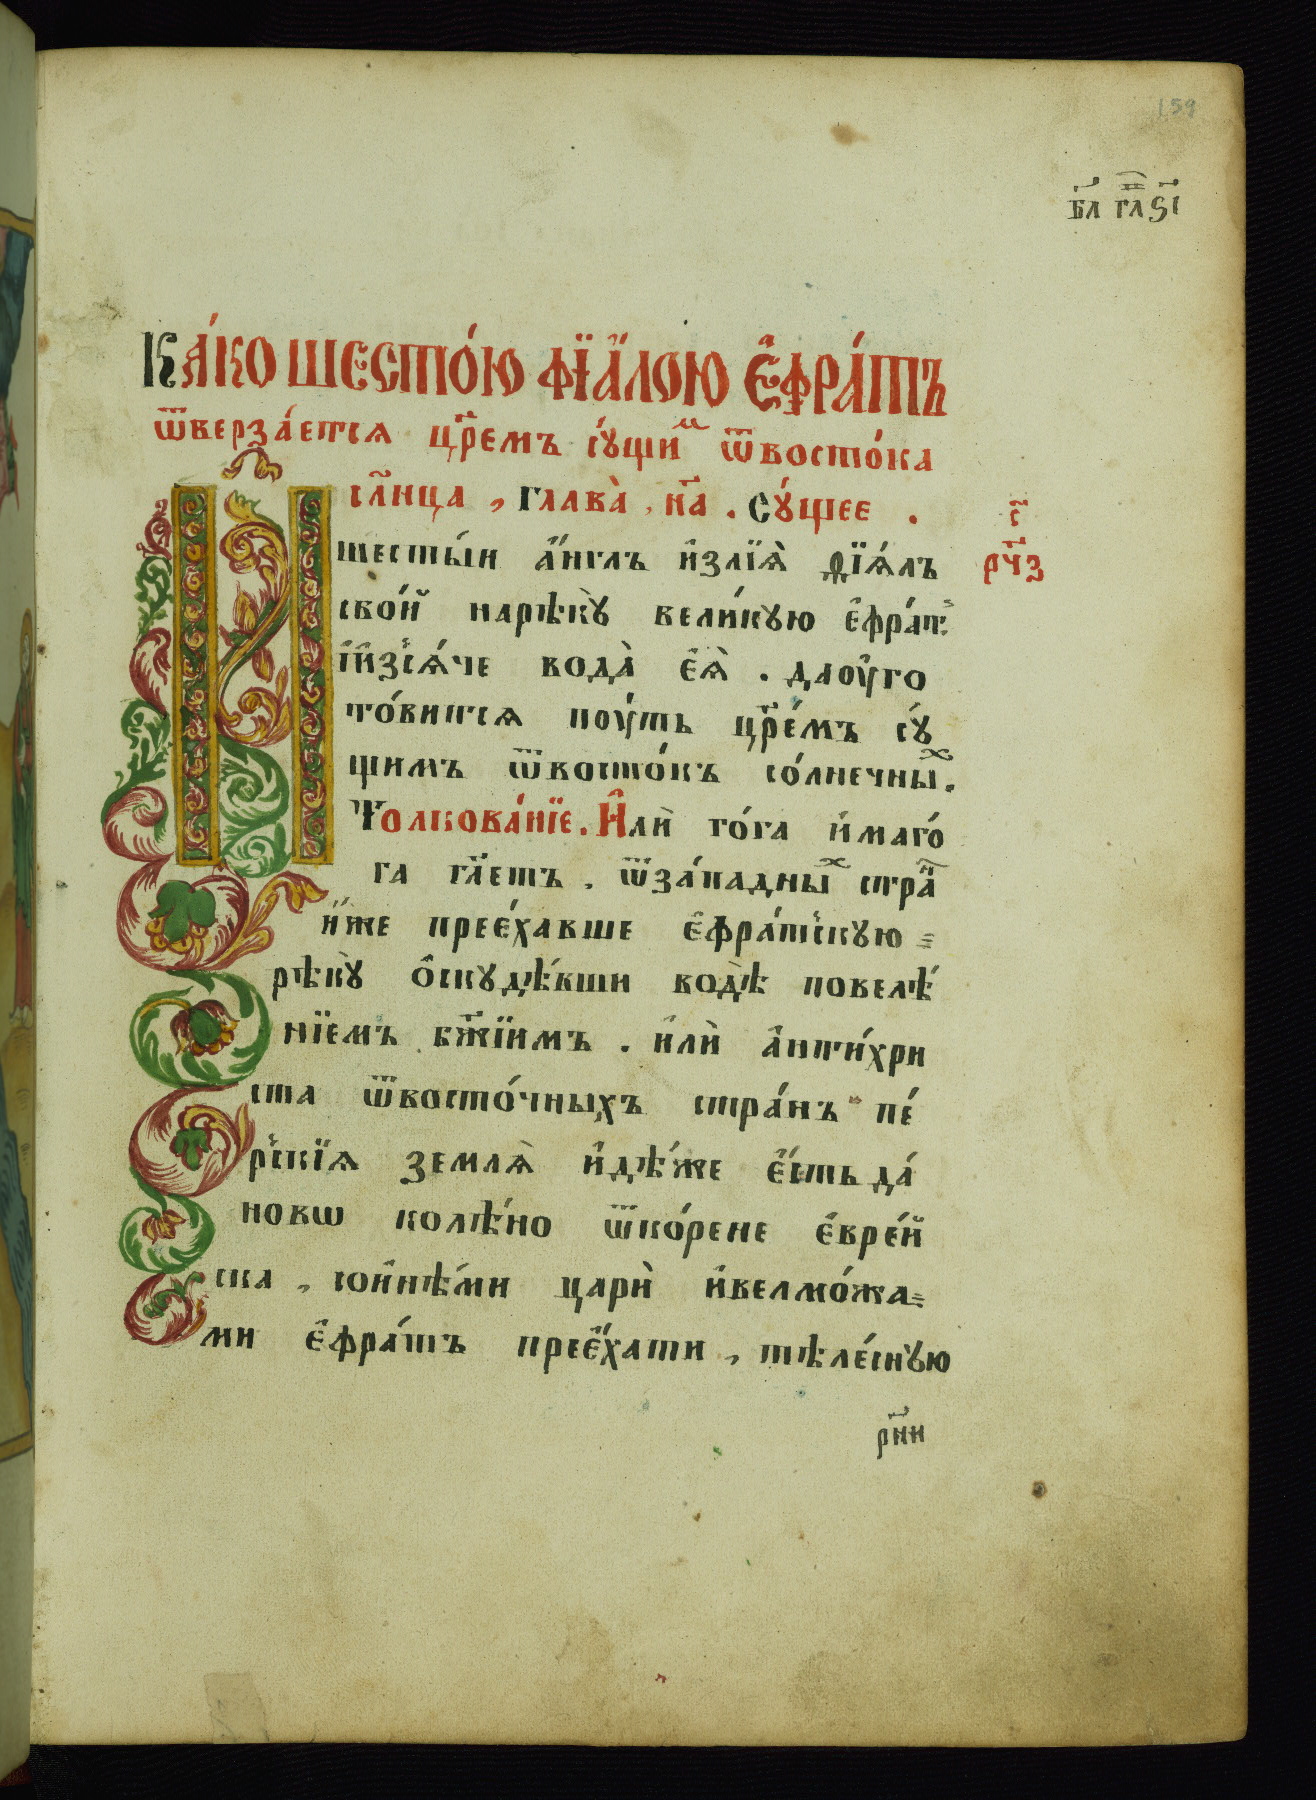 159
б҃л гл҃ ѕ҃і
Ка́ко шесто́ю фїа́лою є҆фра́тъ
ѿверза́етсѧ цр҃емъ сꙋ́щимъ ѿвосто́ка
сл҃нца, глава̀, н҃а. Сꙋ́щее.
с҃
рч҃з
И шесты́й а҆́нг҃лъ и҆злїѧ̀ фїѧ́лъ
сво́й нарѣкꙋ̀ вели́кую є҆фра́тъ
і҆и҆зсѧ́че вода̀ є҆ѧ̀. даоу҆го
то́витсѧ поу́ть цр҃е́мъ сꙋ́
щимъ ѿвосто́къ со́лнечных.
Толкова́нїе. И҆лѝ то́га и҆маго́
га гл҃етъ. ѿза́падных стра̑
и҆̀же прее́хавше є҆фра́тскꙋю
рѣкꙋ̀ ѻ҆скꙋдѣ́вши водѣ̀ повелѣ́
нїемъ бж҃їимъ. и҆лѝ а҆нти́хри
ста ѿвосто́чныхъ стра́нъ пе́
рскїѧ землѧ̀ и҆дѣ́же є҆́сть да́
новѡ колѣ́но ѿко́рене є҆вре́й
ска, сои҆нѣ́ми царѝ и҆велмо́жа
ми є҆фра́тъ прее҆́хати, тѣле́снꙋю
рн҃и